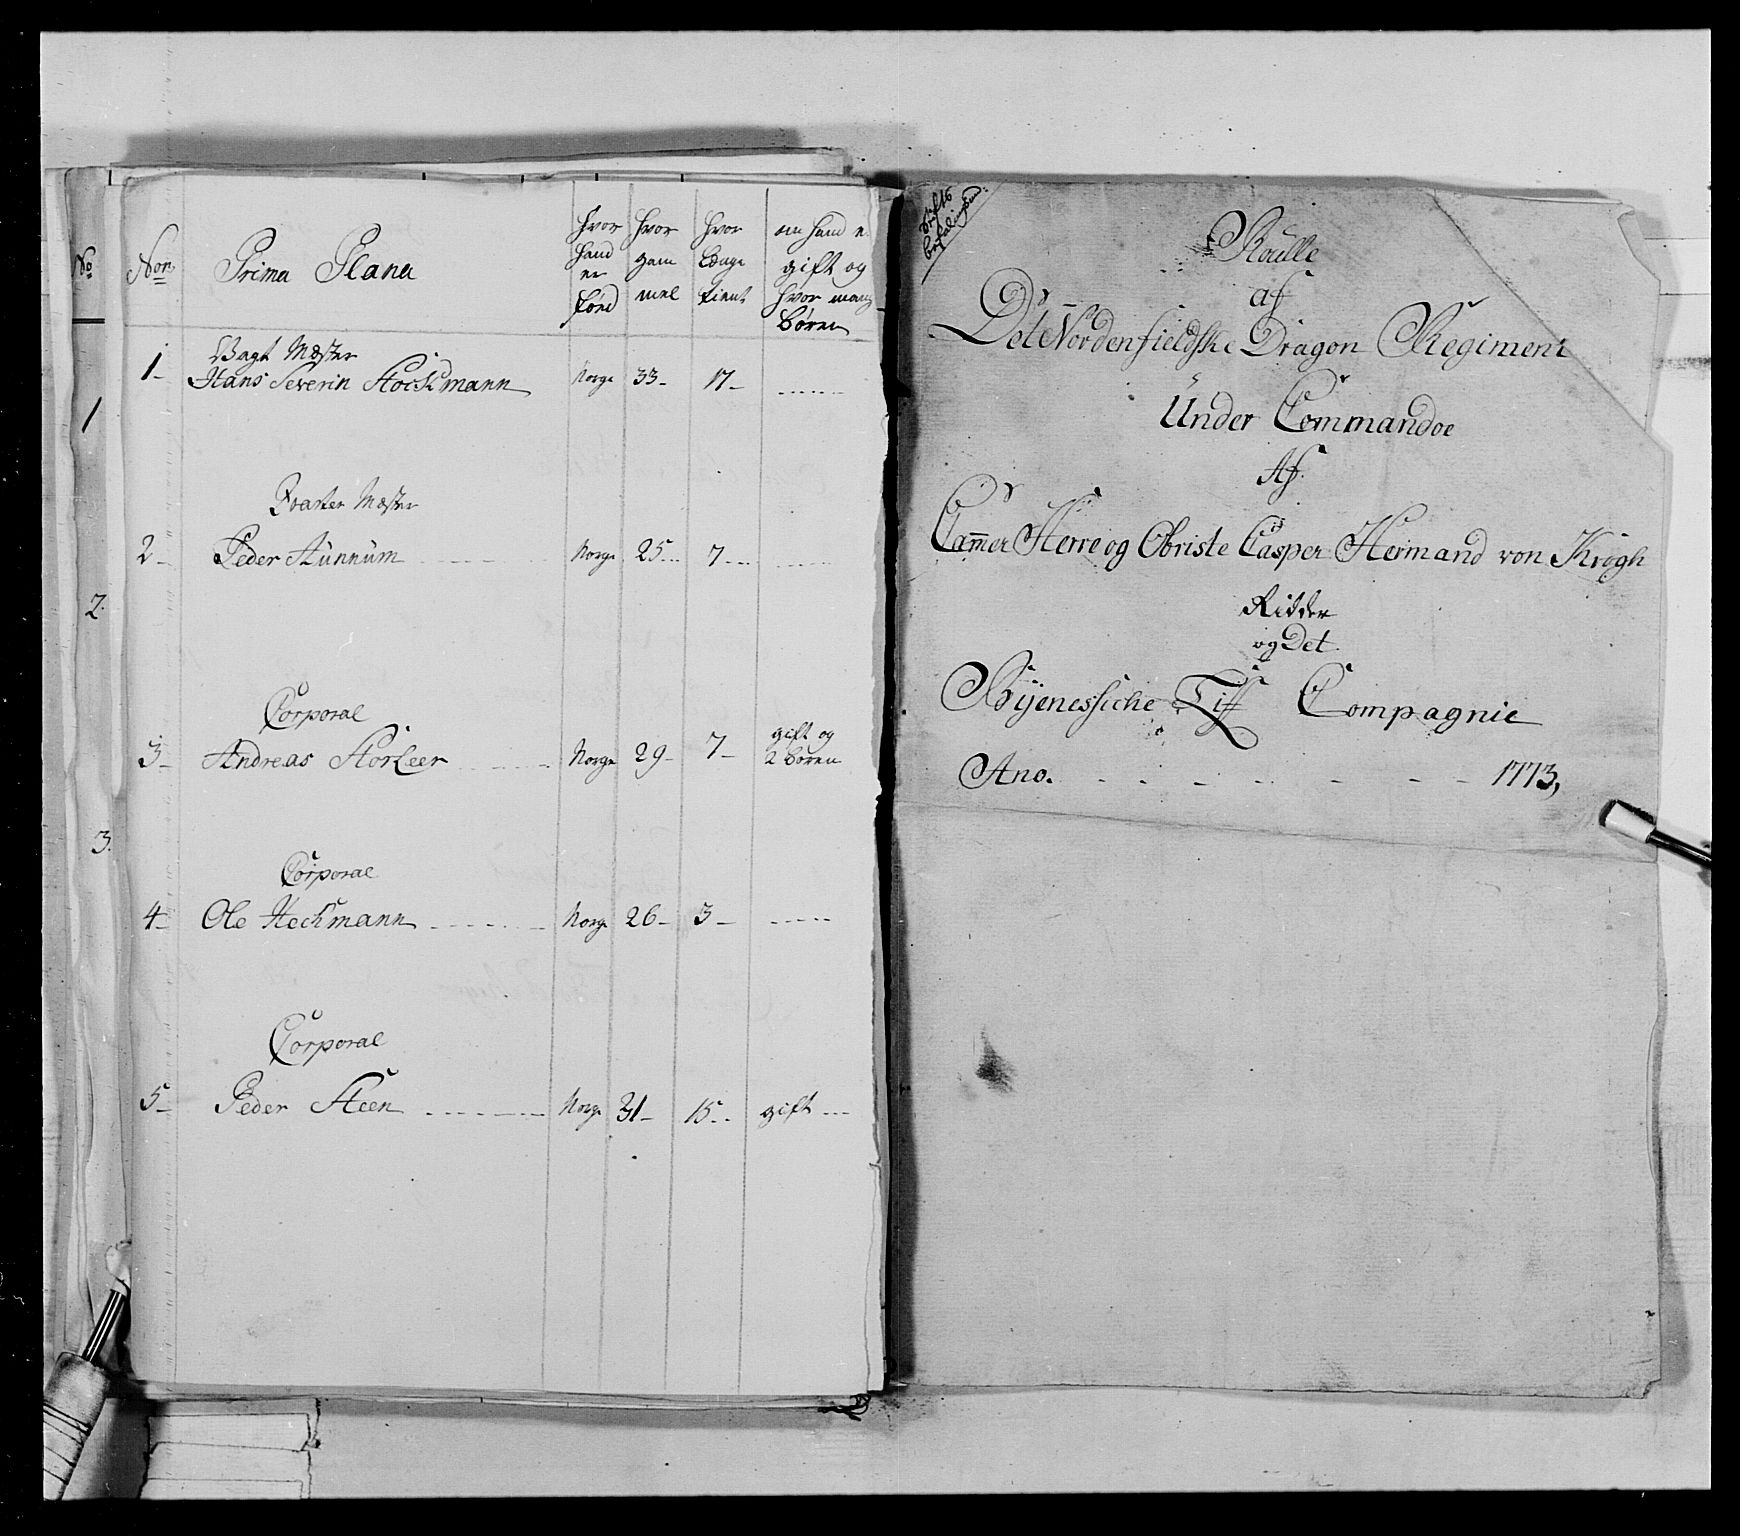 No
1
2.
3.
Non
Prima Plana
Hvor
hand
er
föed
Hvor
gam
mel
Hvor
Længe
tient
om hand e
gift og
hvor mang
Börn
Vagt Mæster
1 Hans Severin Stockmann Norge 33 17
Qvarter Mæster
2 Peder Aünnüm Norge 25 7
Corporal
3 Andreas Storleer Norge 29 7 gift og
2 Börn
Corporal
4 Ole Heckmann Norge 26 3
Corporal
5 Peder Steen Norge 31 15 gift
Roulle
af
Det Nordenfieldske Dragon Regiment
Under Commandoe
Af
Cam̄er Herre og Obriste Casper Hermand von Krogh
Ridder
og Det
Bijenessiche Liff Compagnie
Ano. 1773,